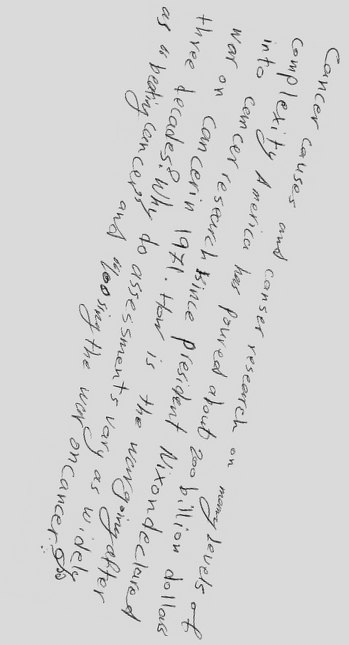 Cancer causes and canser research on many levels of
complexity America has poured about 200 billion dollars
into cancer research since president Nixon declared
war on cancer in 1971. How is the war going after
three decades? Why do assessments vary as widely
as "beating cancer" and "losing the war on cancer."